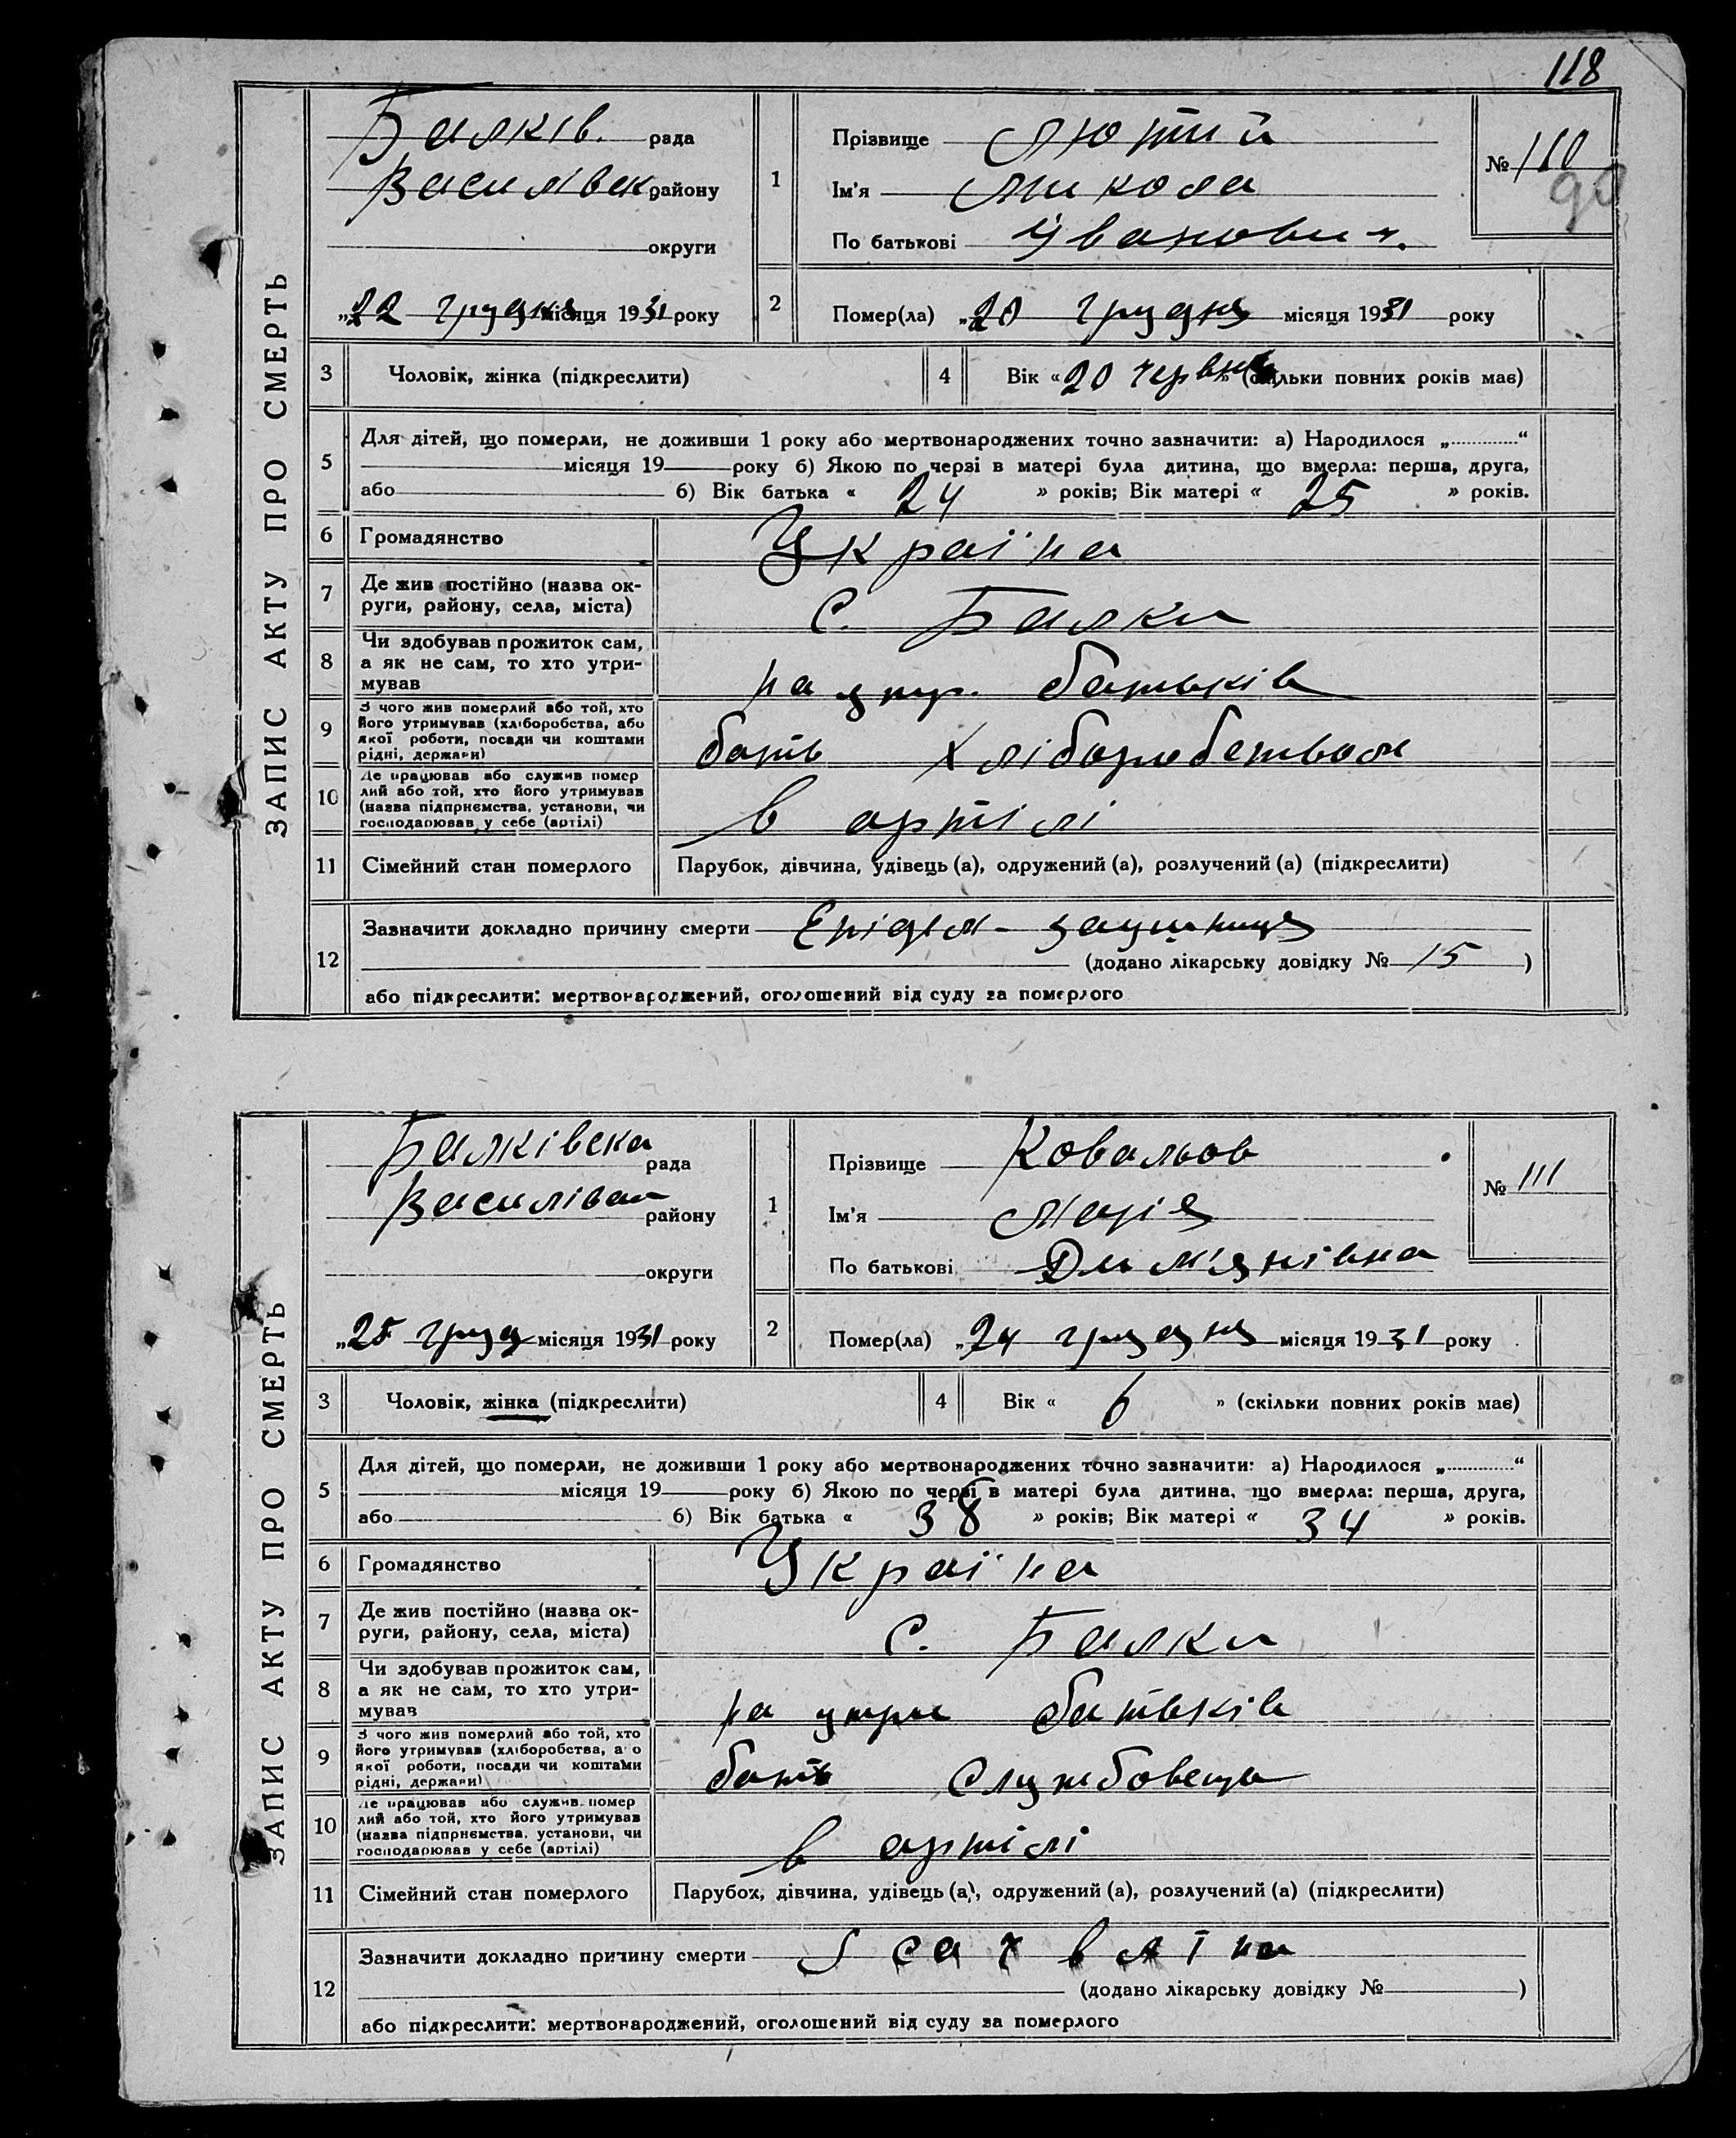 118
ЗАПИС АКТУ ПРО СМЕРТЬ
Балків. рада
Василівск району
округи
„22 грудня місяця 1931 року
1
Прізвище Лютий
Ім'я Микола
По батькові Іванович.
№ 110
90
2 Помер(ла) „20 грудня місяця 1931 року
3 Чоловік, жінка (підкреслити)
4 Вік «20 червня» (скільки повних років має)
5 Для дітей, що померли, не доживши 1 року або мертвонароджених точно зазначити: а) Народилося „ “
місяця 19 року б) Якою по черзі в матері була дитина, що вмерла: перша, друга,
або б) Вік батька « 24 » років; Вік матері « 25 » років.
6 Громадянство Україна
7 Де жив постійно (назва ок-
руги, району, села, міста) С. Балки
8 Чи здобував прожиток сам,
а як не сам, то хто утри-
мував на утр. батьків
9 З чого жив померлий або той, хто
його утримував (хліборобства, або
якої роботи, посади чи коштами
рідні, держави) батьк хліборобством
10 Де працював або служив помер
лий або той, хто його утримував
(назва підприємства, установи, чи
господарював у себе (артілі) в артілі
11 Сімейний стан померлого Парубок, дівчина, удівець (а), одружений (а), розлучений (а) (підкреслити)
12 Зазначити докладно причину смерти Епідем- заушниця
(додано лікарську довідку № 15 )
або підкреслити: мертвонароджений, оголошений від суду за померлого
ЗАПИС АКТУ ПРО СМЕРТЬ
Балківська рада
Василівск району
округи
„25 груд місяця 1931 року
1
Прізвище Ковальов
Ім'я Марія
По батькові Дим'янівна
№ 111
2 Помер(ла) „24 грудня місяця 1931 року
3 Чоловік, жінка (підкреслити)
4 Вік « 6 » (скільки повних років має)
5 Для дітей, що померли, не доживши 1 року або мертвонароджених точно зазначити: а) Народилося „ “
місяця 19 року б) Якою по черзі в матері була дитина, що вмерла: перша, друга,
або б) Вік батька « 38 » років; Вік матері « 34 » років.
6 Громадянство Україна
7 Де жив постійно (назва ок-
руги, району, села, міста) С. Балки
8 Чи здобував прожиток сам,
а як не сам, то хто утри-
мував на утри батьків
9 З чого жив померлий або той, хто
його утримував (хліборобства, або
якої роботи, посади чи коштами
рідні, держави) батьк Службовець
10 Де працював або служив помер
лий або той, хто його утримував
(назва підприємства, установи, чи
господарював у себе (артілі) в артілі
11 Сімейний стан померлого Парубок, дівчина, удівець (а), одружений (а), розлучений (а) (підкреслити)
12 Зазначити докладно причину смерти
(додано лікарську довідку № )
або підкреслити: мертвонароджений, оголошений від суду за померлого